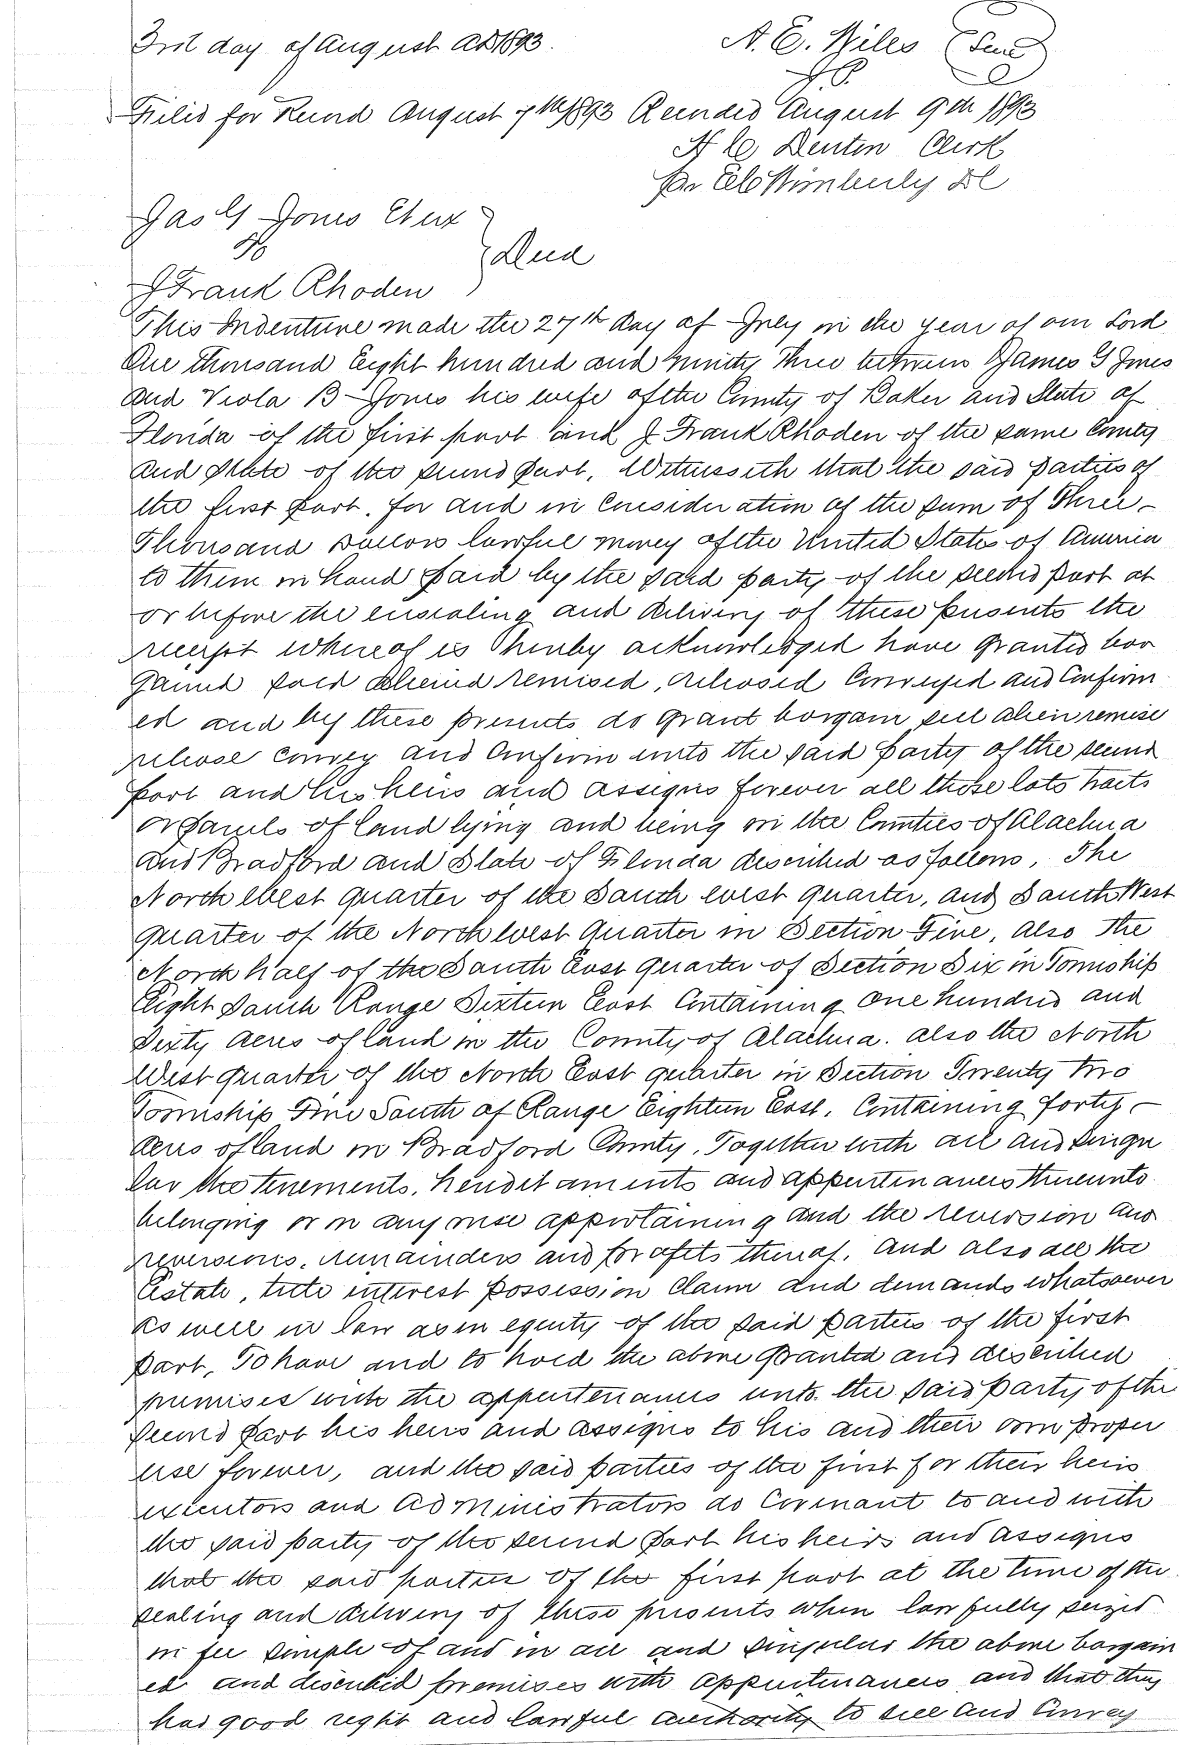 3rd day of August AD 1893. A. E. Wiles (Seal)
J. P.
Filed for Record August 7th 1893 Recorded August 9th 1893
H C Denton Clerk
Per E C Wimberly D C
Jas G Jones Et ux
To } Deed
J Frank Rhoden
This Indenture made the 27th day of July in the year of our Lord
One thousand Eight hundred and ninety three between James G Jones
and Viola B Jones his wife of the County of Baker and State of
Florida of the first part and J Frank Rhoden of the same County
and State of the second part. Witnesseth that the said parties of
the first part. for and in Consideration of the sum of Three-
Thousand Dollars lawful money of the United States of America
to them in hand paid by the said party of the second part at
or before the ensealing and delivery of these presents the
receipt whereof is hereby acknowledged have granted bar
gained sold aliened remised, released Conveyed and Confirm
ed and by these presents do grant bargain sell alien remise
release convey and Confirm unto the said party of the second
part and his heirs and assigns forever all those lots tracts
or parcels of land lying and being in the Counties of Alachua
and Bradford and State of Florida described as follows, The
North West quarter of the South west quarter, and South West
quarter of the North west quarter in Section Five, also the
North half of the South East quarter of Section Six in Township
Eight South Range Sixteen East Containing one hundred and
Sixty acres of land in the County of Alachua. also the North
West quarter of the North East quarter in Section Twenty two
Township Five South of Range Eighteen East, Containing forty-
acres of land in Bradford County, Together with all and singu
lar the tenements, hereditaments and appurtenances thereunto
belonging or in any wise appertaining and the reversion and
reversions, remainders and profits thereof, and also all the
Estate, title interest possession claim and demands whatsoever
as well in law as in equity of the said parties of the first
part, To have and to hold the above granted and described
premises with the appurtenances unto the said party of the
second part his heirs and assigns to his and their own proper
use forever, and the said parties of the first for their heirs
executors and administrators do Covenant to and with
the said party of the second part his heirs and assigns
that the said parties of the first part at the time of the
sealing and delivery of these presents when lawfully seized
in fee simple of and in all and singular the above bargain
ed and described premises with appurtenances and that they
had good right and lawful authority to sell and Convey